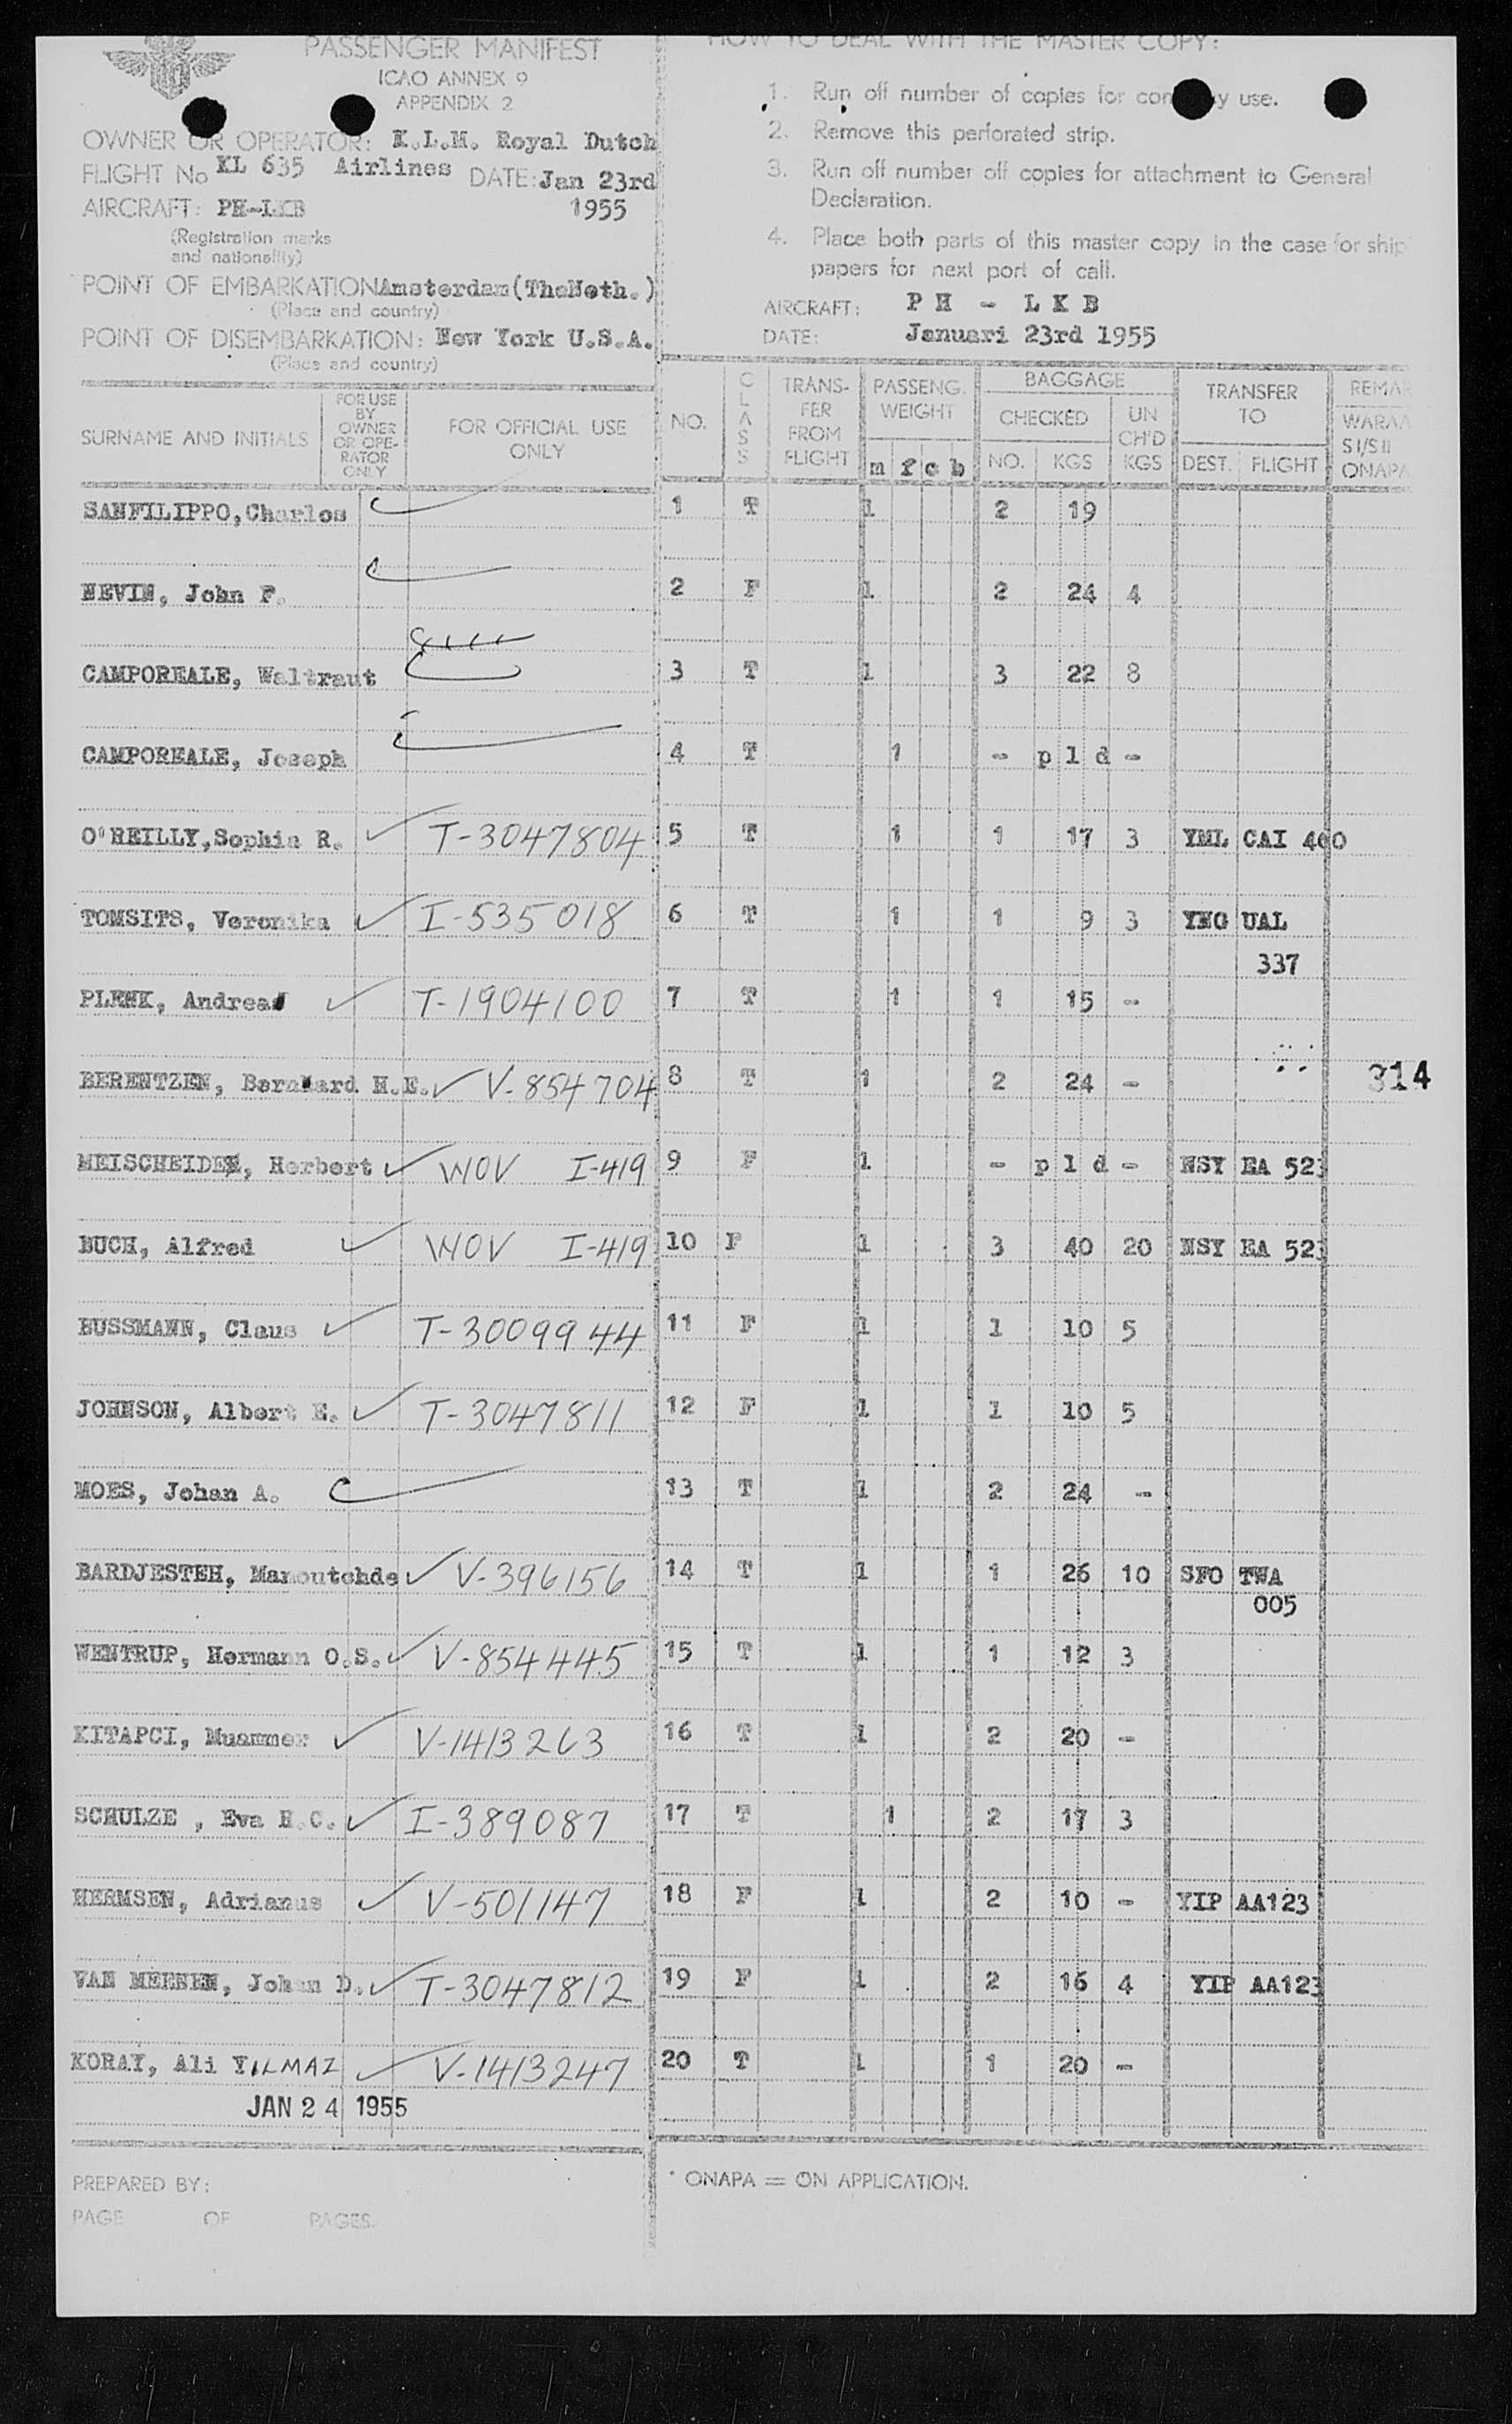 PASSENGER MANIFEST
ICAO ANNEX 9
APPENDIX 2
OWNER OR OPERATOR: K.L.M. Royal Dutch
FLIGHT No KL 635 Airlines DATE: Jan 23rd
AIRCRAFT: PH-LKB 1955
(Registration marks
and nationality)
POINT OF EMBARKATION Amsterdam (TheNeth.)
(Place and country)
POINT OF DISEMBARKATION: New York U.S.A.
(Place and country)
HOW TO DEAL WITH THE MASTER COPY:
1. Run off number of copies for company use.
2. Remove this perforated strip.
3. Run off number off copies for attachment to General
Declaration.
4. Place both parts of this master copy in the case for ship
papers for next port of call.
AIRCRAFT: PH - LKB
DATE: Januari 23rd 1955
SURNAME AND INITIALS FOR USE BY OWNER OR OPERATOR ONLY FOR OFFICIAL USE ONLY NO. CLASS TRANSFER FROM FLIGHT PASSENG. WEIGHT m f c b BAGGAGE CHECKED NO. KGS UN CH'D KGS TRANSFER TO DEST. FLIGHT REMAR WARAA SI/SII ONAPA
SANFILIPPO, Charles 1 T 1 2 19
NEVIN, John F. 2 F 1 2 24 4
CAMPOREALE, Waltraut 3 T 1 3 22 8
CAMPOREALE, Joseph 4 T 1 - p l d -
O'REILLY, Sophia R. T-3047804 5 T 1 1 17 3 YML CAI 400
TOMSITS, Veronika I-535018 6 T 1 1 9 3 YNG UAL
337
PLENK, Andrea T-1904100 7 T 1 1 15 -
BERENTZEN, Bernhard H.E. V-854704 8 T 1 2 24 - 314
MEISCHEIDER, Herbert WOV I-419 9 F 1 - p l d - NSY EA 523
BUCH, Alfred WOV I-419 10 F 1 3 40 20 NSY EA 523
BUSSMANN, Claus T-3009944 11 F 1 1 10 5
JOHNSON, Albert E. T-3047811 12 F 1 1 10 5
MOES, Johan A. 13 T 1 2 24 -
BARDJESTEH, Manoutchde V-396156 14 T 1 1 26 10 SFO TWA
005
WENTRUP, Hermann O.S. V-854445 15 T 1 1 12 3
KITAPCI, Muammer V-1413263 16 T 1 2 20 -
SCHULZE , Eva H.C. I-389087 17 T 1 2 17 3
HERMSEN, Adrianus V-501147 18 F 1 2 10 - YIP AA123
VAN MEEREN, Johan D. T-3047812 19 F 1 2 16 4 YIP AA123
KORAY, Ali YILMAZ V-1413247 20 T 1 1 20 -
JAN 24 1955
PREPARED BY:
PAGE OF PAGES.
* ONAPA = ON APPLICATION.